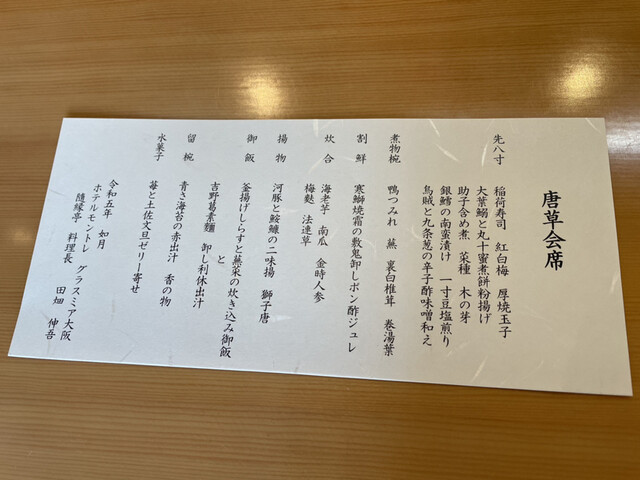 唐草会席
先八寸　稲荷寿司　紅白梅　厚焼玉子
大葉鰯と丸十蜜煮餅粉揚げ
助子含め煮　菜種　木の芽
銀鱈の南蛮漬け　一寸豆塩煎り
烏賊と九条葱の辛子酢味噌和え
煮物椀　鴨つみれ　蕪　裏白椎茸　巻湯葉
割鮮　寒鰤焼霜の数鬼卸しポン酢ジュレ
炊合　海老芋　南瓜　金時人参
梅麩　法連草
揚物　河豚と鮟鱇の二味揚　獅子唐
御飯　釜揚げしらすと蕪菜の炊き込み御飯
と
吉野葛素麺　卸し利休出汁
留椀　青さ海苔の赤出汁　香の物
水菓子　苺と土佐文旦ゼリー寄せ
令和五年　如月
ホテルモントレ　グラスミア大阪
隨縁亭　料理長　田畑　伸吾